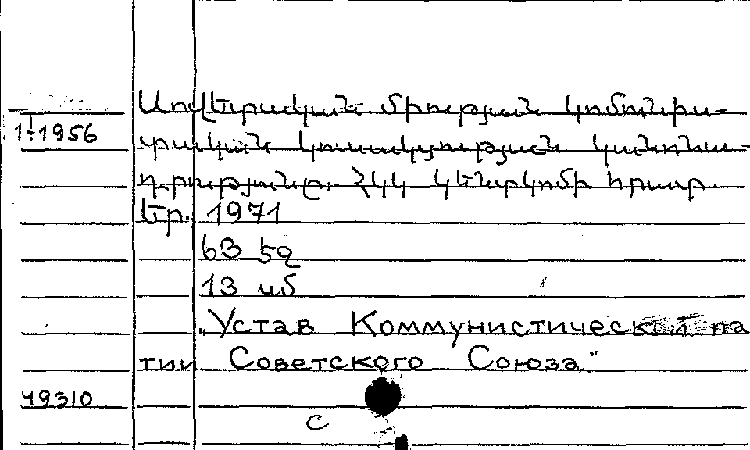 Սովետական Միության կոմունիս-
1:1956
տական կուսակցության կանոնա-
դրությունը. ՀԿԿ կենտկոմի հրատ.
Եր. 1971
63 էջ
13 սմ
„Устав Коммунистической па
тии Советского Союза"
49310
с